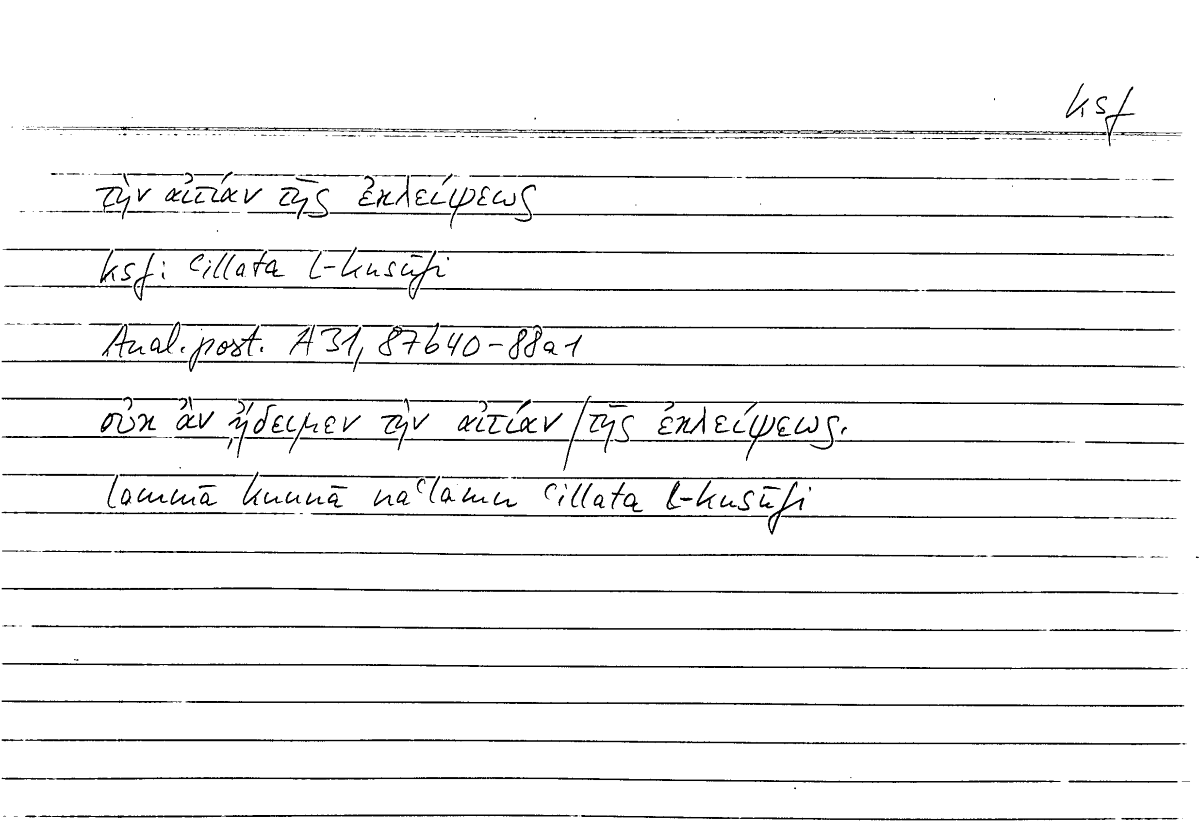 ksf
τὴν αἰτίαν τῆς ἐκλείψεως
ksf: ʿillata l-kusūfi
Anal. post. A 31, 87b40-88a1
οὐκ ἂν ᾔδειμεν τὴν αἰτίαν / τῆς ἐκλείψεως.
lammā kunnā naʿlamu ʿillata l-kusūfi